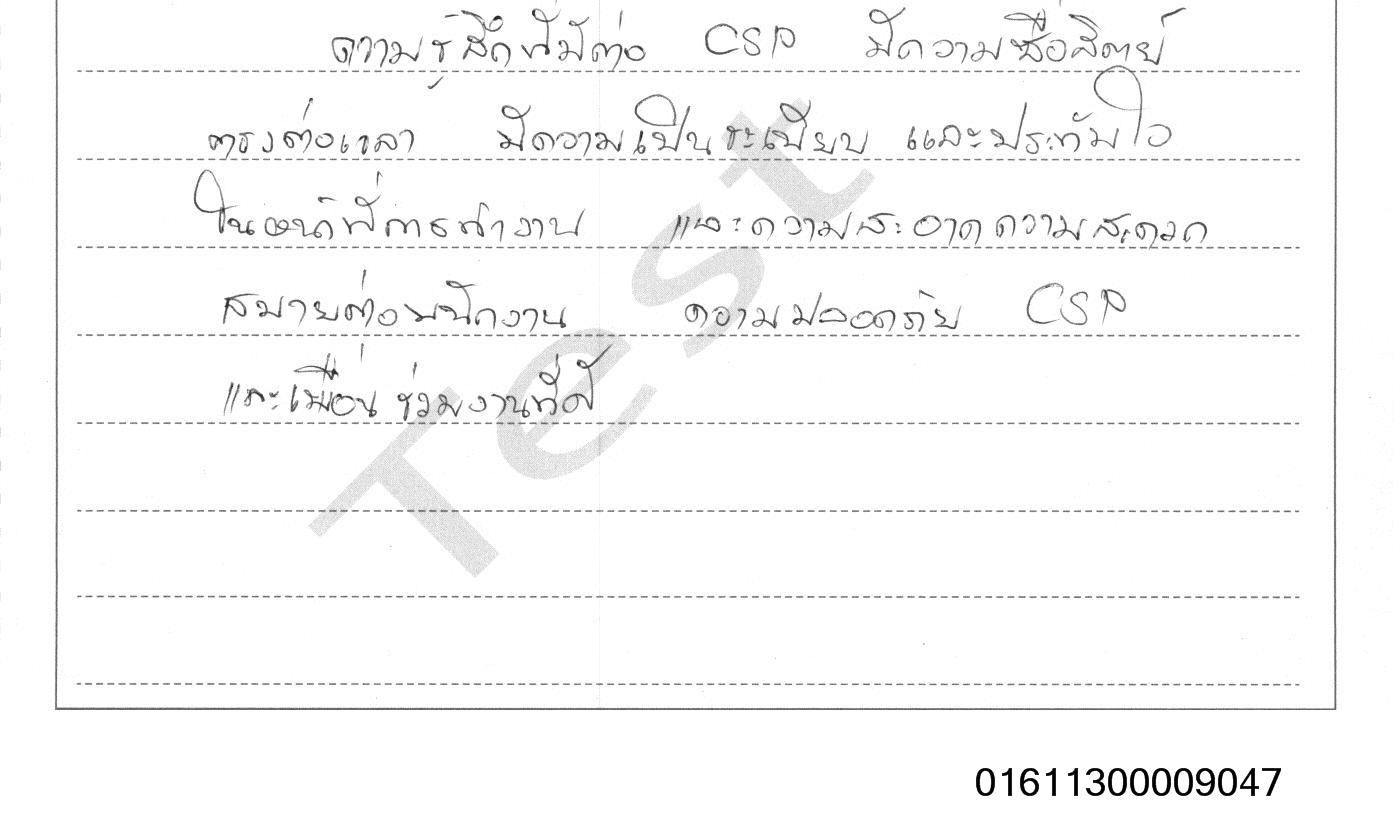 ความรู้สึกที่มีต่อ CSP มีความซื่อสัตย์
ตรงต่อเวลา มีความเป็นระเบียบ และประทับใจ
ในหน้าที่การทำงาน และความสะอาดความสะดวก
สบายต่อพนักงาน ความปลอดภัย CSP
และเพื่อนร่วมงานที่ดี
Test
01611300009047